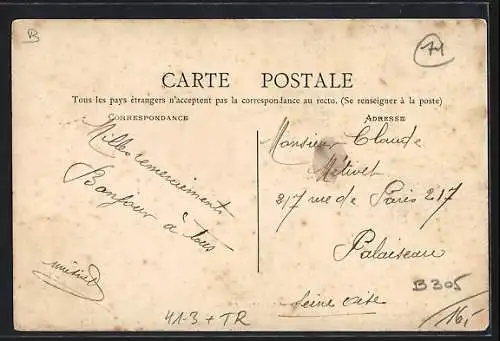 B
71
CARTE POSTALE
Tous les pays étrangers n'acceptent pas la correspondance au recto. (Se renseigner à la poste)
CORRESPONDANCE
Milles remerciements
Bonjour à tous
ADRESSE
Monsieur Claude
Métivet
217 rue de Paris 217
Palaiseau
Seine Oise
B305
41-3 + TR
16,-